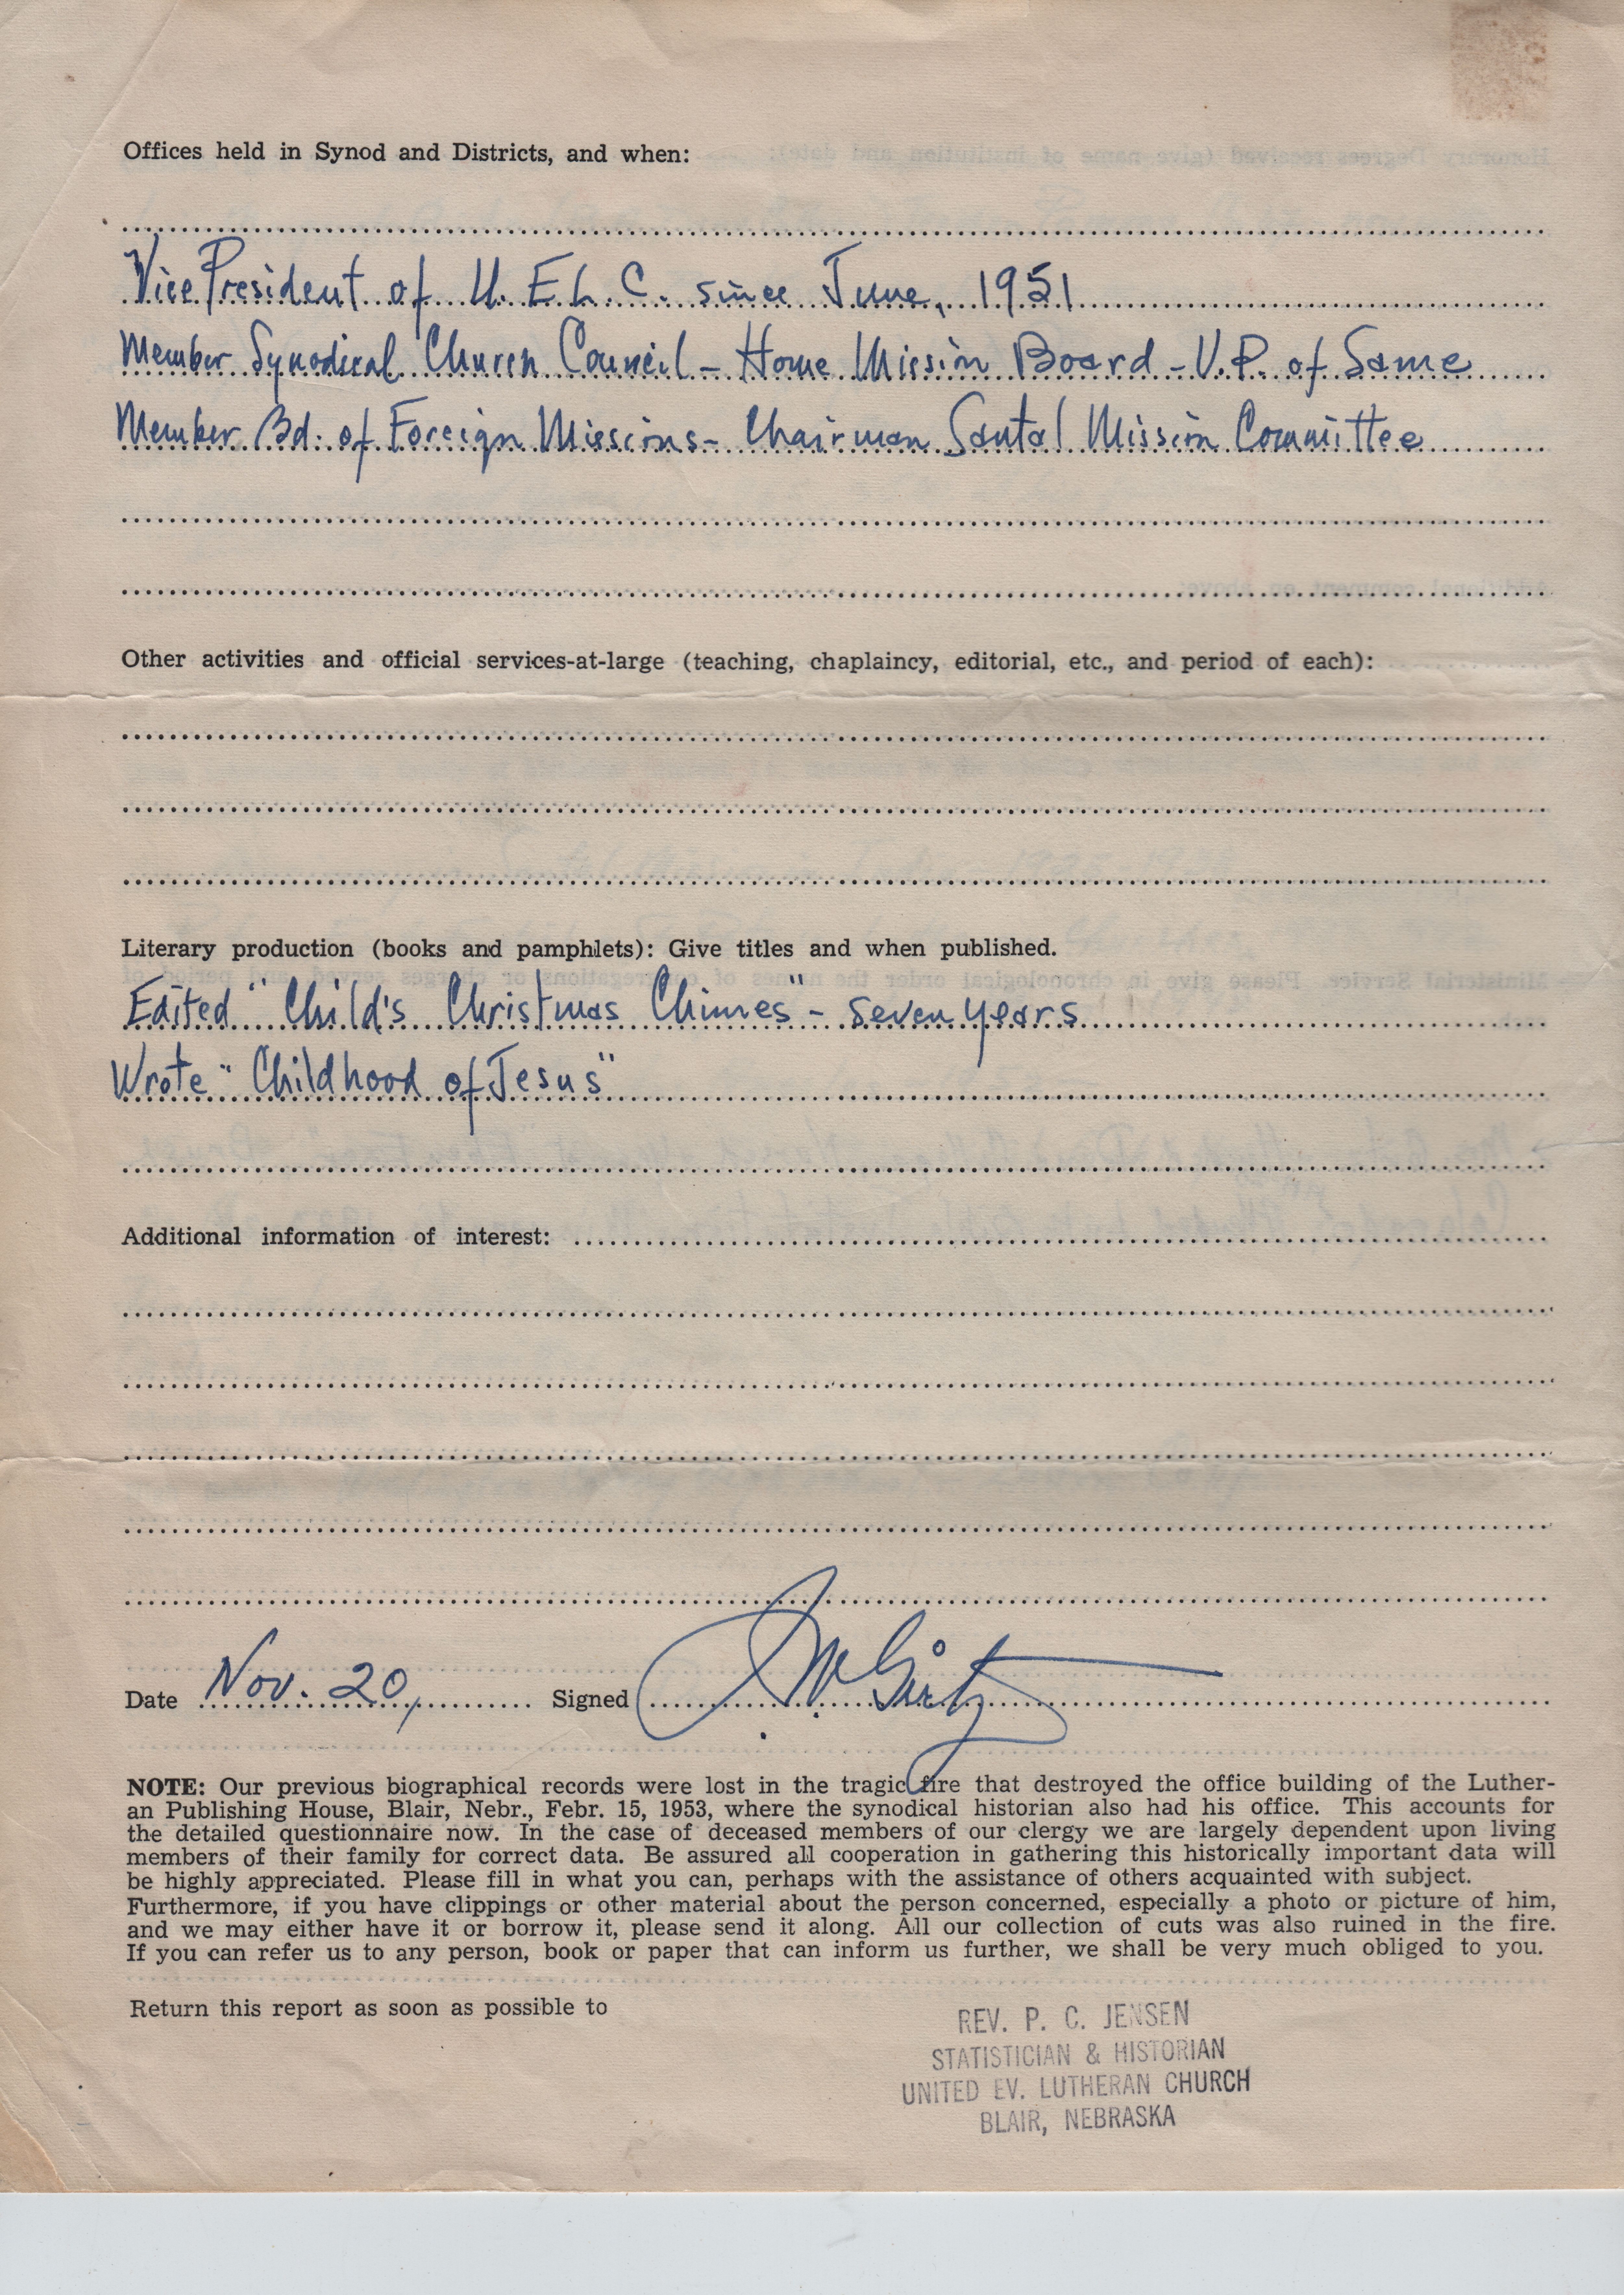 Offices held in Synod and Districts, and when:
Vice President of U. E. L. C. since June, 1951
Member Synodical Church Council - Home Mission Board - V.P. of Same
Member Bd. of Foreign Missions - Chairman Santal Mission Committee
Other activities and official services-at-large (teaching, chaplaincy, editorial, etc., and period of each):
Literary production (books and pamphlets): Give titles and when published.
Edited "Child's Christmas Chimes" - seven years
Wrote "Childhood of Jesus"
Additional information of interest:
Date Nov. 20, Signed
NOTE: Our previous biographical records were lost in the tragic fire that destroyed the office building of the Luther-
an Publishing House, Blair, Nebr., Febr. 15, 1953, where the synodical historian also had his office. This accounts for
the detailed questionnaire now. In the case of deceased members of our clergy we are largely dependent upon living
members of their family for correct data. Be assured all cooperation in gathering this historically important data will
be highly appreciated. Please fill in what you can, perhaps with the assistance of others acquainted with subject.
Furthermore, if you have clippings or other material about the person concerned, especially a photo or picture of him,
and we may either have it or borrow it, please send it along. All our collection of cuts was also ruined in the fire.
If you can refer us to any person, book or paper that can inform us further, we shall be very much obliged to you.
Return this report as soon as possible to
REV. P. C. JENSEN
STATISTICIAN & HISTORIAN
UNITED EV. LUTHERAN CHURCH
BLAIR, NEBRASKA